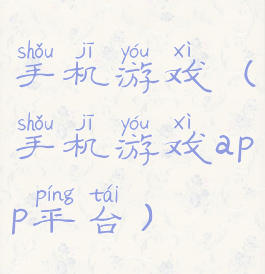 shǒu jī yóu xì
手机游戏（
shǒu jī yóu xì
手机游戏ap
píng tái
p平台）